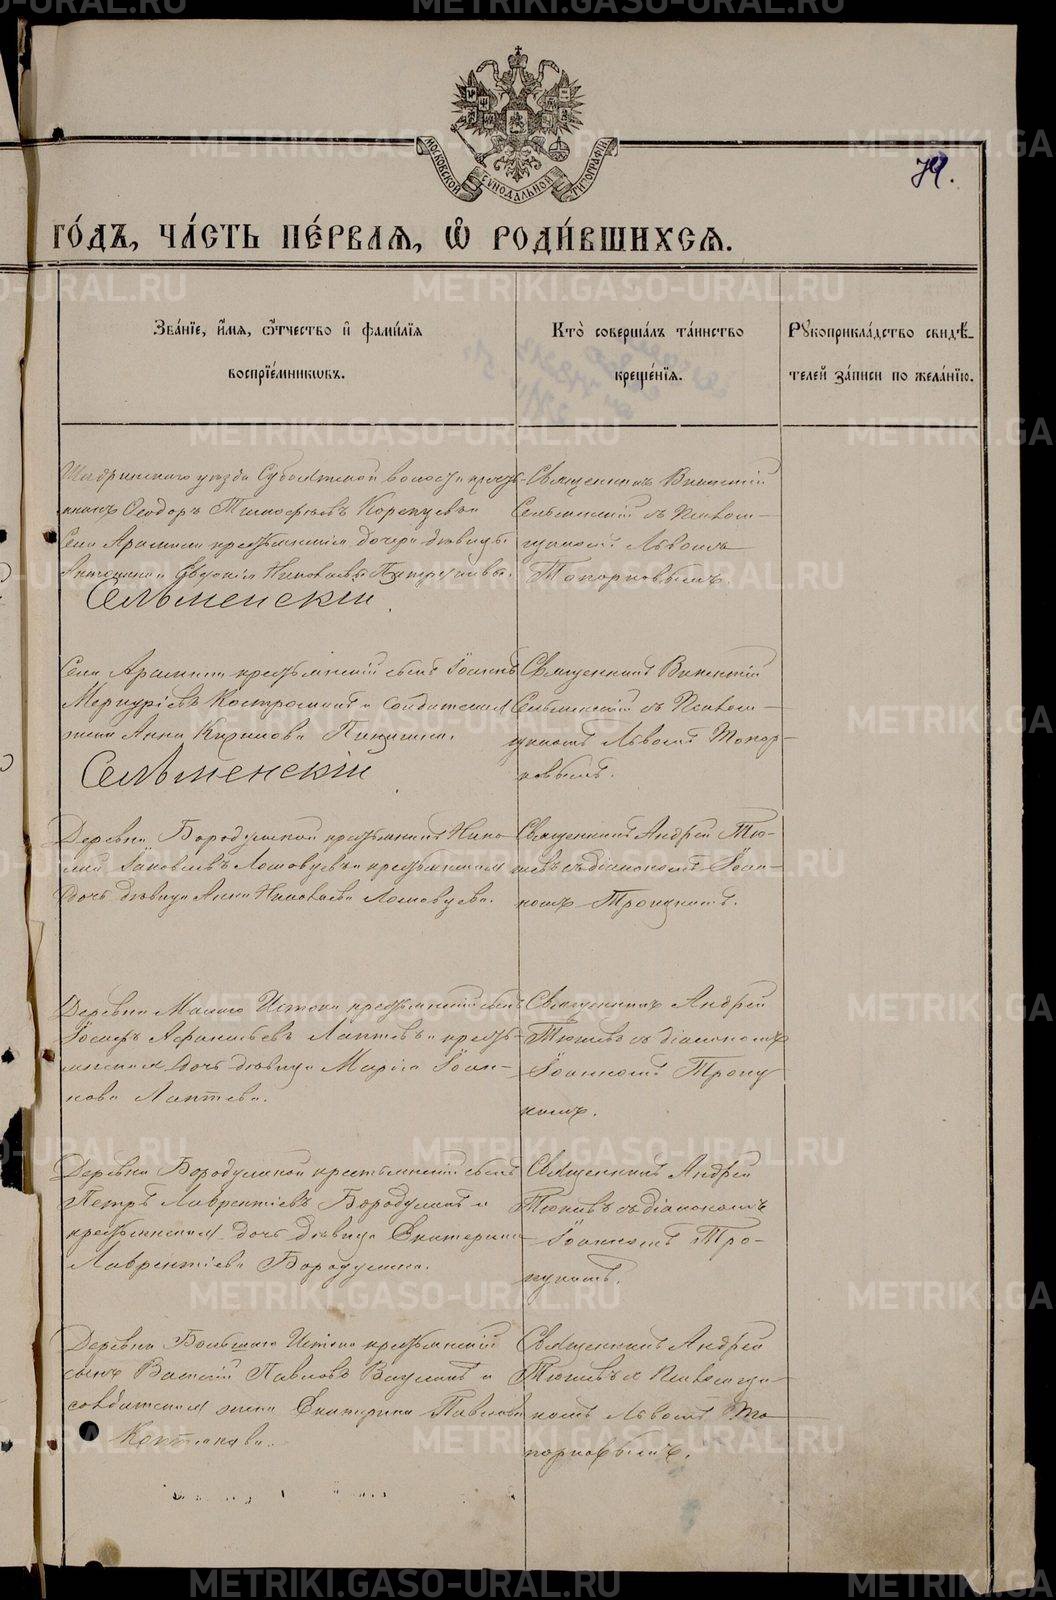 МОСКОВСКОЙ СѴНОДАЛЬНОЙ ТИПОГРАФІИ
79.
ГО́ДЪ, ЧА́СТЬ ПЕ́РВАЯ, Ѽ РОДИ́ВШИХСЯ.
Зва́нїе, и҆́мя, ѻ҆́тчество и҆ фами́лїя
воспрїе́мникѡвъ.
Кто̀ соверша́лъ та́инство
креще́нїя.
Рꙋкоприкла́дство свидѣ́-
телей за́писи по жела́нїю.
Шадринскаго уѣзда волости кресть-
янинъ Ѳеодоръ Тимоѳеевъ и
Села Арамили крестьянскія дочери дѣвицы
и Евдокія Николаевы
Сельменскій
Священникъ Викентій
Сельменскій съ Псалом-
щикомъ Львомъ
Топорковымъ.
Села Арамили крестьянскій сынъ Іоаннъ
Меркуріевъ Костроминъ и солдатская
жена Анна Кирилова Пищина.
Сельменскій
Священникъ Викентій
Сельменскій съ Псалом-
щикомъ Львомъ Топор-
ковымъ.
Деревни Бородулиной крестьянинъ Нико-
лай Іаковлевъ Ломовцевъ и крестьянская
дочь дѣвица Анна Николаева Ломовцева.
Священникъ Андрей Тю-
шевъ съ діакономъ Іоан-
номъ Троицкимъ.
Деревни Малаго Истока крестьянскій сынъ
Іосифъ Аѳанасьевъ Лаптевъ и кресть-
янская дочь дѣвица Марія Іоан-
нова Лаптева.
Священникъ Андрей
Тюшевъ съ діакономъ
Іоанномъ Троиц
кимъ.
Деревни Бородулиной крестьянскій сынъ
Петръ Лаврентіевъ Бородулинъ и
крестьянская дочь дѣвица Екатерина
Лаврентіева Бородулина.
Священникъ Андрей
Тюшевъ съ діакономъ
Іоанномъ Тро-
ицкимъ.
Деревни Большаго Истока крестьянскій
сынъ Василій Павловъ Ваулинъ и
солдатская жена Екатерина Павлова
Священникъ Андрей
Тюшевъ съ Псаломщи-
комъ Львомъ То
порковымъ.
METRIKI.GASO-URAL.RU